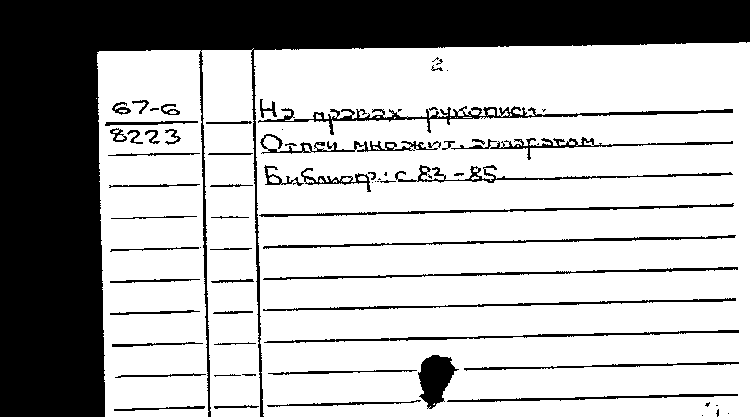 2
67-6 На правах рукописи.
8223 Отпеч. множит. аппаратом.
Библиогр.: с. 83-85.